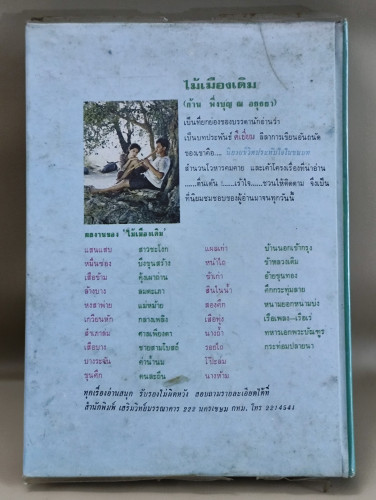 ไม้เมืองเดิม
(ก้าน พึ่งบุญ ณ อยุธยา)
เป็นที่ยกย่องของบรรดานักอ่านว่า
เป็นบทประพันธ์ ดีเยี่ยม ลีลาการเขียนอันถนัด
ของเขาคือ....
สำนวนโวหารคมคาย และเค้าโครงเรื่องที่น่าอ่าน
...ตื่นเต้น !......เร้าใจ.....ชวนให้ติดตาม จึงเป็น
ที่นิยมชมชอบของผู้อ่านมาจนทุกวันนี้
ผลงานของ "ไม้เมืองเดิม"
แสนแสบ สาวชะโงก แผลเก่า บ้านนอกเข้ากรุง
หมื่นซ่อง บึงขุนสร้าง หน้าไอ้ ข้าหลวงเดิม
เสือข้าม คุ้งเผาถ่าน ชิงเก่า อ้ายขุนทอง
ล้างบาง ลมตะเภา สินในน้ำ ศึกกระทุ่มลาย
หงสาพ่าย แม่หม้าย สองศึก หนามยอกหนามบ่ง
เกวียนหัก กลางเพลิง เสือทุ่ง เรือเพลง-เรือเร่
สำเภาล่ม ศาลเพียงตา นางถ้ำ ทหารเอกพระบัณฑูร
เสือบาง ชายสามโบสถ์ รอยไถ กระท่อมปลายนา
บางระจัน ค่าน้ำนม โป๊ะล้ม
ขุนศึก คนละถิ่น นางห้าม
ทุกเรื่องอ่านสนุก รับรองไม่ผิดหวัง สอบถามรายละเอียดได้ที่
สำนักพิมพ์ เสริมวิทย์บรรณาคาร 222 นครเขษม กทม. โทร 2214541